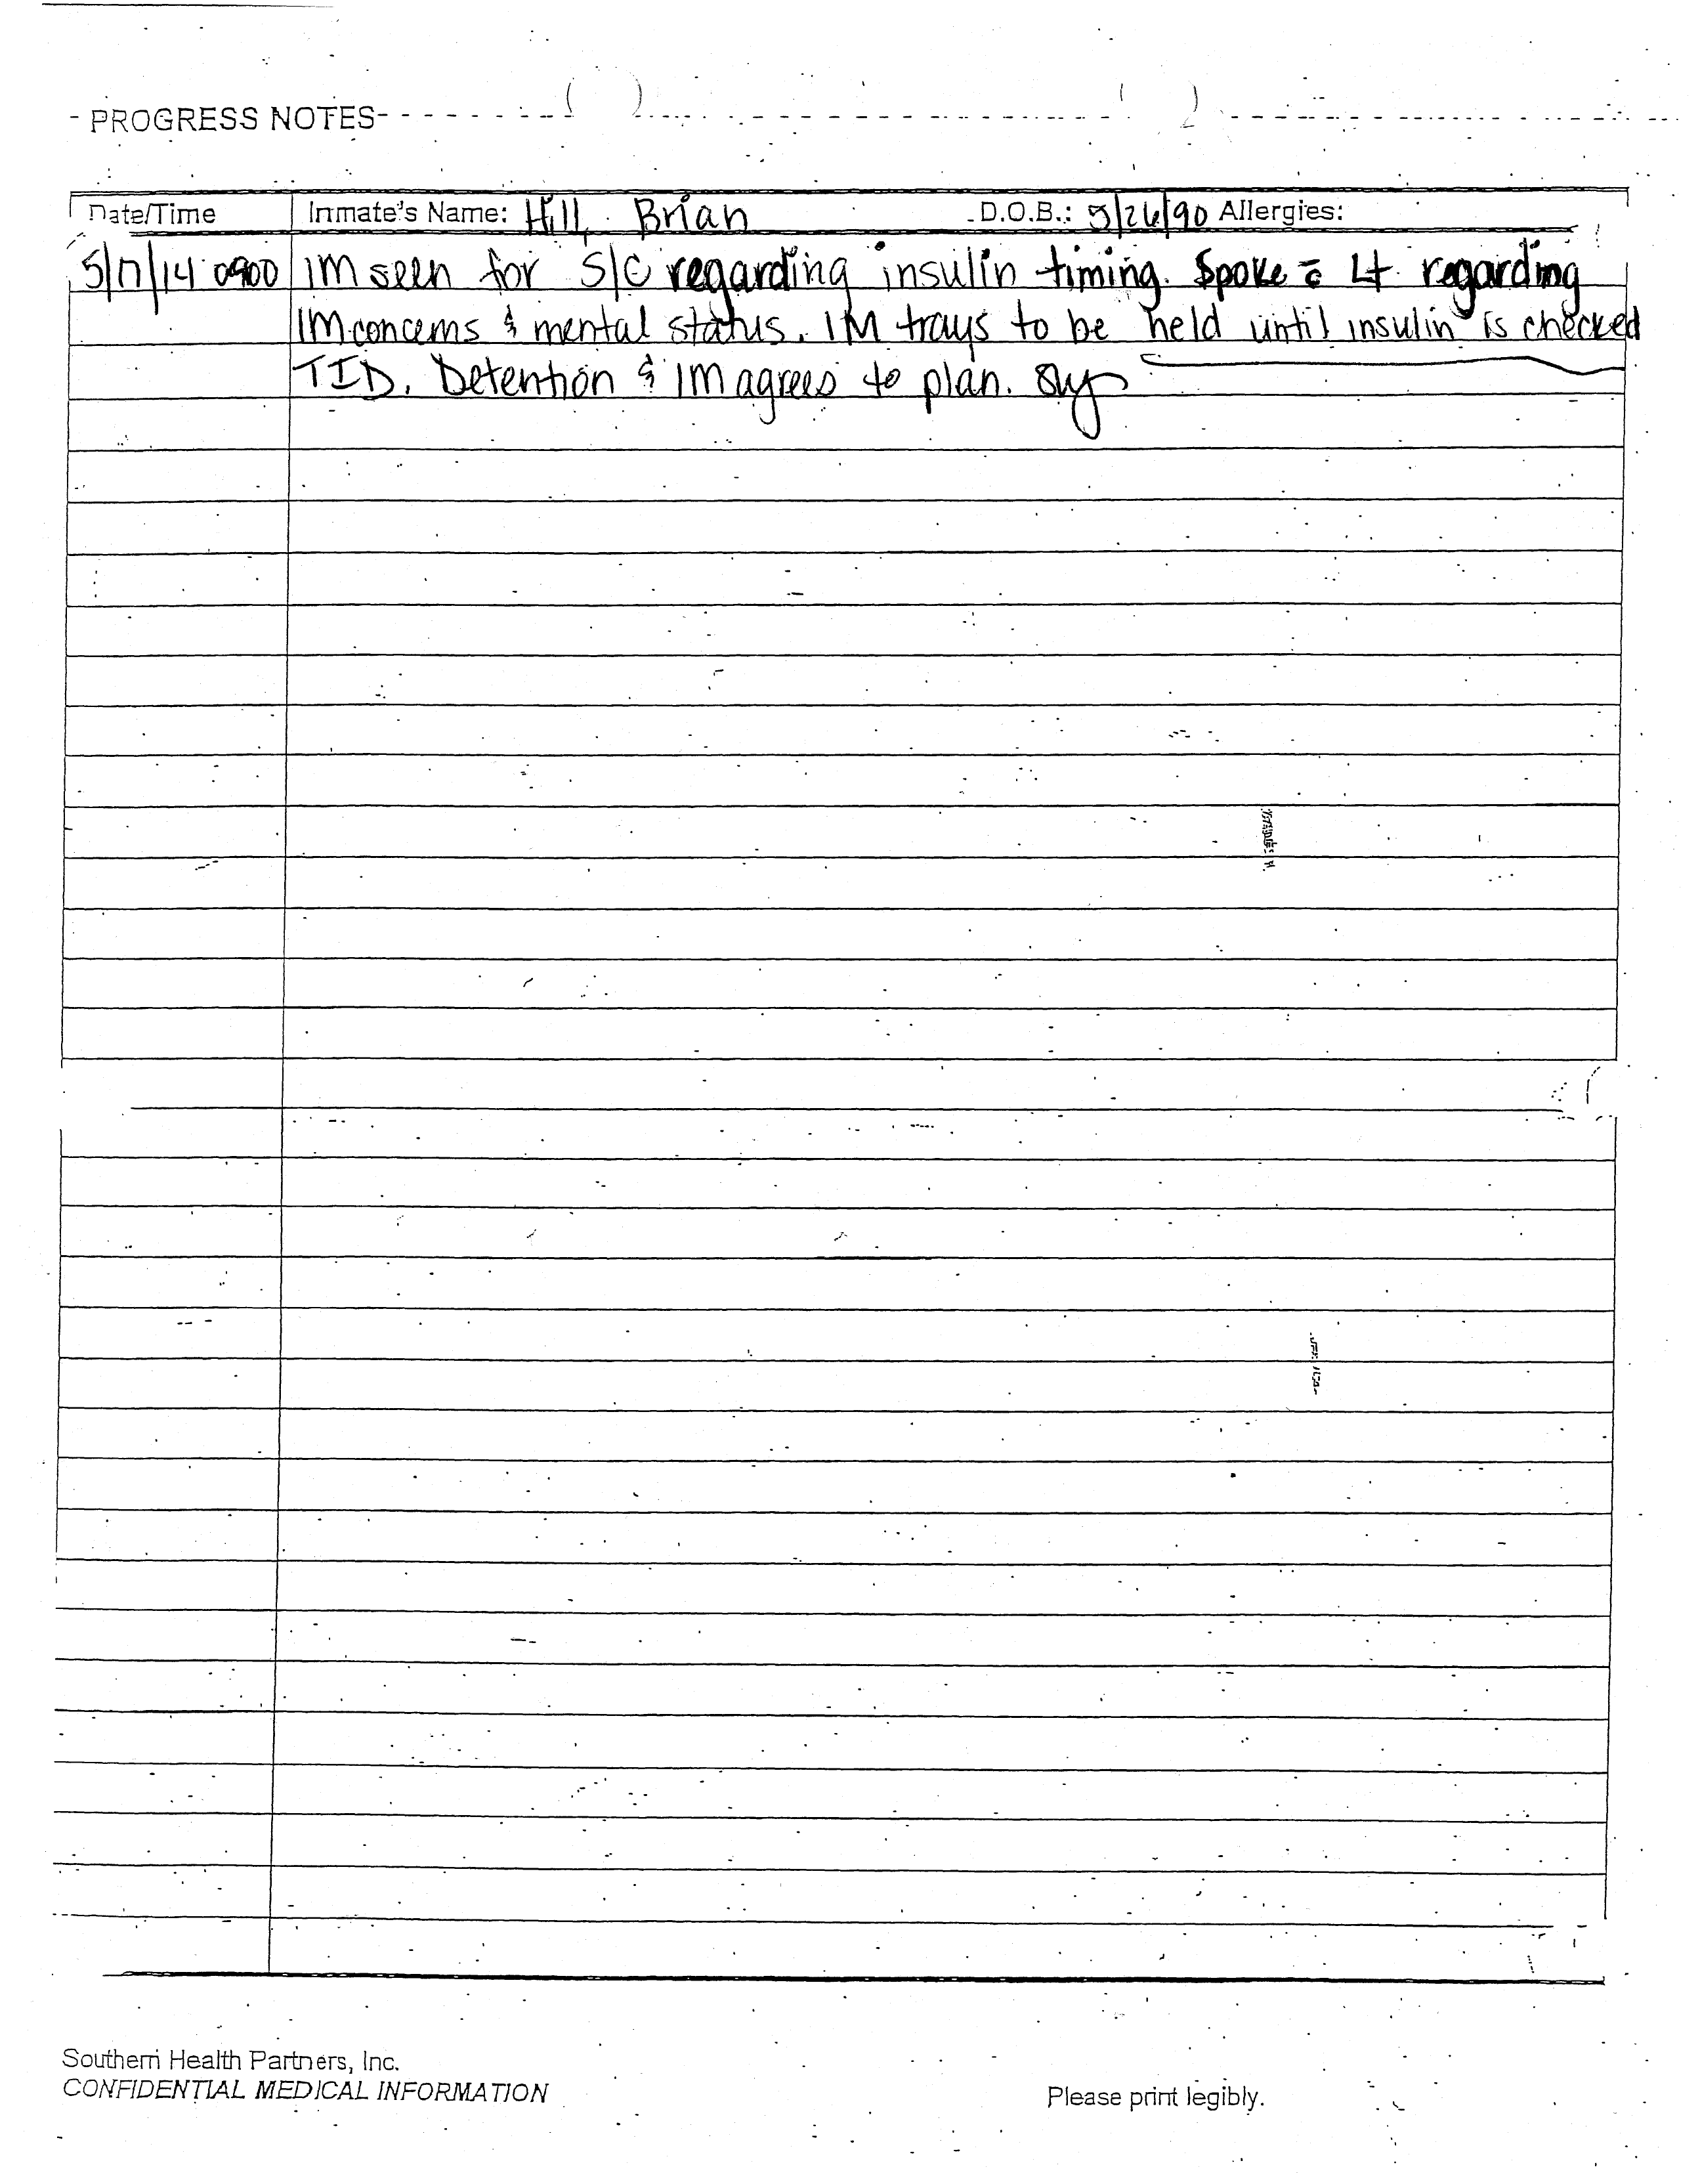 PROGRESS NOTES
Date/Time Inmate's Name: Hill, Brian D.O.B.: 5/26/90 Allergies:
5/17/14 0900 IM seen for S/C regarding insulin timing. Spoke c̄ Lt regarding
IM concerns & mental status. IM trays to be held until insulin is checked
TID. Detention & IM agrees to plan.
Southern Health Partners, Inc.
CONFIDENTIAL MEDICAL INFORMATION
Please print legibly.